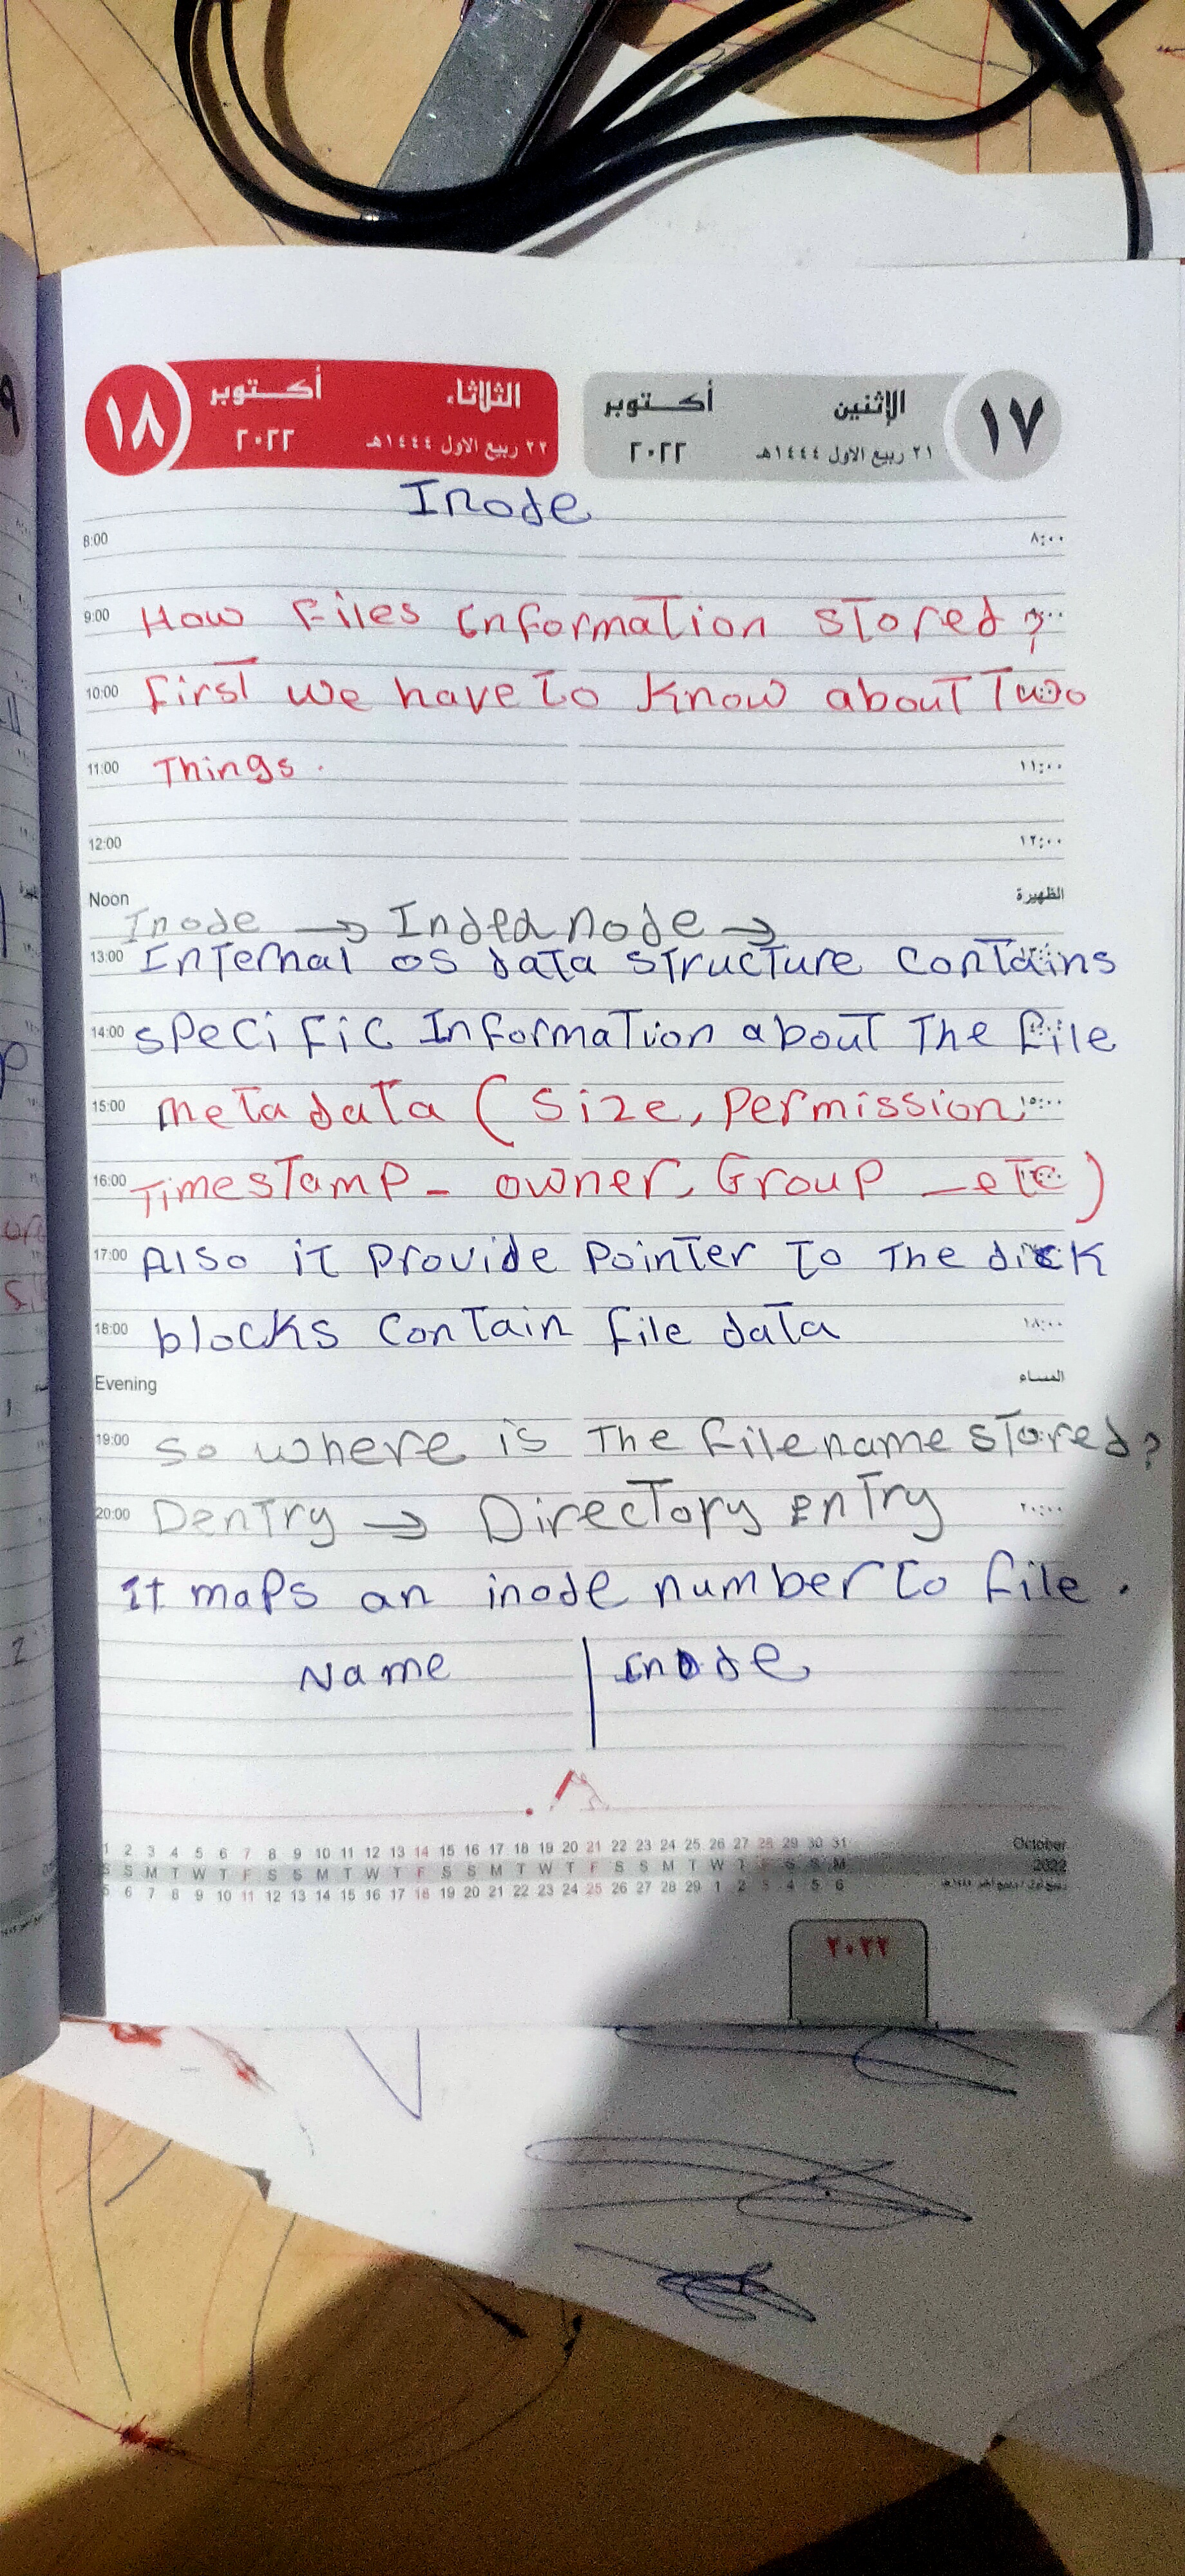 ١٨ أكتوبر ٢٠٢٢ الثلاثاء ٢٢ ربيع الاول ١٤٤٤هـ
١٧ أكتوبر ٢٠٢٢ الإثنين ٢١ ربيع الاول ١٤٤٤هـ
Inode
8:00 ٨:٠٠
9:00 How Files information stored ?
10:00 first we have to know about Two
11:00 Things . ١١:٠٠
12:00 ١٢:٠٠
Noon الظهيرة
Inode → Inded node →
13:00 Internal os data structure contains
14:00 specific Information about The file
15:00 metadata ( size, permission, ١٥:٠٠
16:00 Timestamp - owner, Group - etc )
17:00 Also it provide pointer to The disk
18:00 blocks contain file data ١٨:٠٠
Evening المساء
19:00 so where is The filename stored?
20:00 Dentry → Directory entry ٢٠:٠٠
it maps an inode number to file .
Name | inode
1 2 3 4 5 6 7 8 9 10 11 12 13 14 15 16 17 18 19 20 21 22 23 24 25 26 27 28 29 30 31 October
S S M T W T F S S M T W T F S S M T W T F S S M T W T F S S M 2022
5 6 7 8 9 10 11 12 13 14 15 16 17 18 19 20 21 22 23 24 25 26 27 28 29 1 2 3 4 5 6
٢٠٢٢